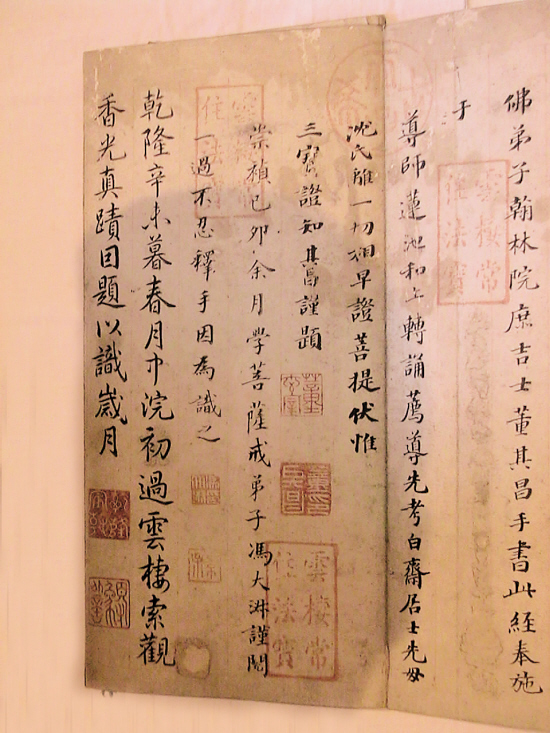 佛弟子翰林院庶吉士董其昌手書此經奉施
于
導師蓮池和上轉誦薦導先考白齋居士先母
沈氏離一切相早證菩提伏惟
三寶證知其昌謹題
崇禎己卯余月學菩薩戒弟子馮大
謹閱
一過不忍釋手因為識之
乾隆辛未暮春月中浣初過雲棲索觀
香光真蹟因題以識歲月
雲棲常住法寶
雲棲常住法寶
雲棲常住法寶